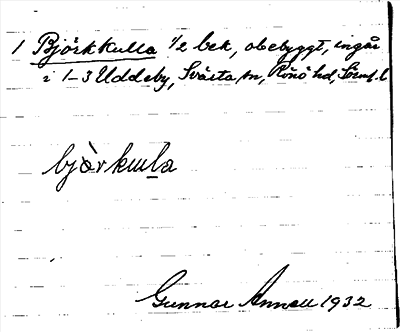 1 Björkkulla 1/2 bek, obebyggt, ingår
i 1-3 Uddeby, Svärta sn, Rönö hd, Sörml. l
björkula
Gunnar Annell 1932